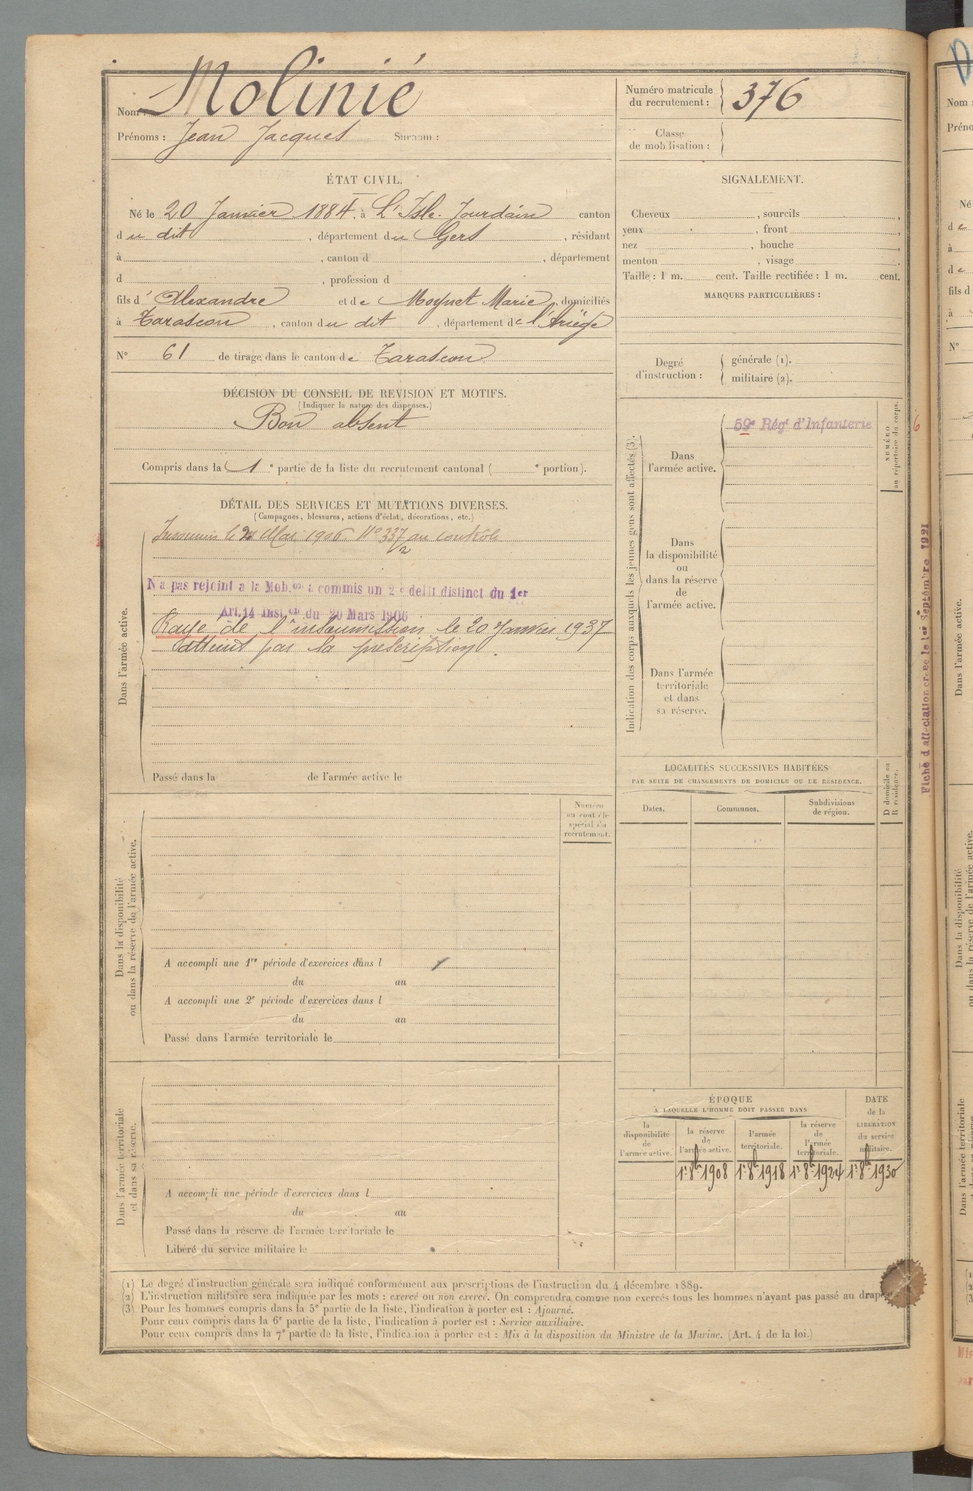 Nom : Molinié
Prénoms : Jean Jacques Surnom :
Numéro matricule
du recrutement : 376
Classe
de mobilisation :
ÉTAT CIVIL.
Né le 20 Janvier 1884, à L'Isle-Jourdain canton
du dit , département du Gers , résidant
à , canton d , département
d , profession d
fils d'Alexandre et de Moysset Marie, domiciliés
à Tarascon , canton du dit , département de l'Ariège
N° 61 de tirage dans le canton de Tarascon
DÉCISION DU CONSEIL DE REVISION ET MOTIFS.
(Indiquer la nature des dispenses.)
Bon absent
Compris dans la 1e partie de la liste du recrutement cantonal ( e portion).
DÉTAIL DES SERVICES ET MUTATIONS DIVERSES.
(Campagnes, blessures, actions d'éclat, décorations, etc.)
Dans l'armée active.
Insoumis le 24 Mai 1906. N° 337 au contrôle
2
N'a pas rejoint à la Mob.on a commis un 2e délit distinct du 1er
Art. 14 Inst.on du 20 Mars 1906
Rayé de l'insoumission le 20 Janvier 1937
atteint par la prescription.
Passé dans la de l'armée active le
Dans la disponibilité
ou dans la réserve de l'armée active.
Numéro
au contrôle
spécial du
recrutement.
A accompli une 1re période d'exercices dans l
du au
A accompli une 2e période d'exercices dans l
du au
Passé dans l'armée territoriale le
Dans l'armée territoriale
et dans sa réserve.
A accompli une période d'exercices dans l
du au
Passé dans la réserve de l'armée territoriale le
Libéré du service militaire le
SIGNALEMENT.
Cheveux , sourcils ,
yeux , front ,
nez , bouche ,
menton , visage ,
Taille : 1 m. cent. Taille rectifiée : 1 m. cent.
MARQUES PARTICULIÈRES :
Degré
d'instruction :
générale (1).
militaire (2).
Indication des corps auxquels les jeunes gens sont affectés (3).
NUMÉRO
au répertoire du corps.
59e Régt d'Infanterie
Dans
l'armée active.
Dans
la disponibilité
ou
dans la réserve
de
l'armée active.
Dans l'armée
territoriale
et dans
sa réserve.
LOCALITÉS SUCCESSIVES HABITÉES
PAR SUITE DE CHANGEMENTS DE DOMICILE OU DE RÉSIDENCE.
Dates.
Communes.
Subdivisions
de région.
D domicile ou
R résidence.
ÉPOQUE
À LAQUELLE L'HOMME DOIT PASSER DANS
DATE
de la
LIBÉRATION
du service
militaire.
la
disponibilité
de
l'armée active.
la réserve
de
l'armée active.
l'armée
territoriale.
la réserve
de
l'armée
territoriale.
1r 8bre 1908 1r 8bre 1918 1r 8bre 1924 1r 8bre 1930
(1) Le degré d'instruction générale sera indiqué conformément aux prescriptions de l'instruction du 4 décembre 1889.
(2) L'instruction militaire sera indiquée par les mots : exercé ou non exercé. On comprendra comme non exercés tous les hommes n'ayant pas passé au drapeau.
(3) Pour les hommes compris dans la 5e partie de la liste, l'indication à porter est : Ajourné.
Pour ceux compris dans la 6e partie de la liste, l'indication à porter est : Service auxiliaire.
Pour ceux compris dans la 7e partie de la liste, l'indication à porter est : Mis à la disposition du Ministre de la Marine. (Art. 4 de la loi.)
Fiche d'affectation créée le 1er Septembre 1921